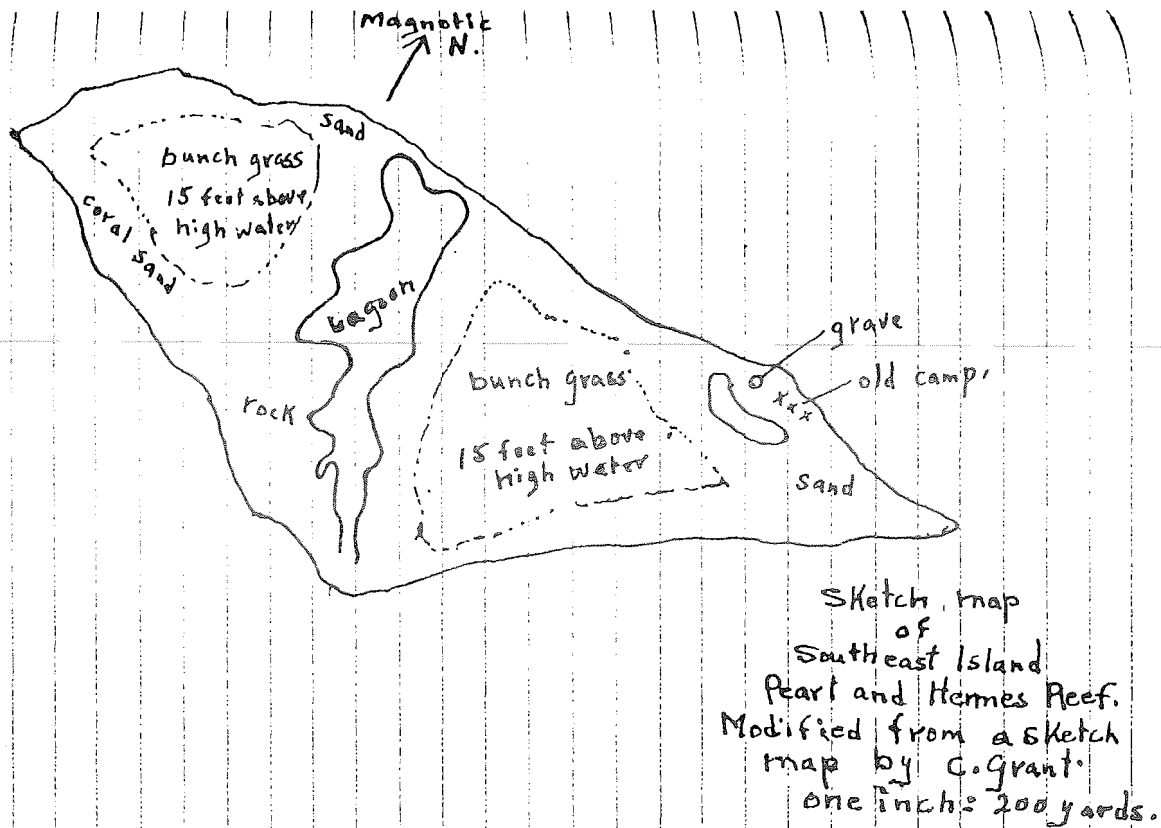 Magnetic
N.
sand
bunch grass
15 feet above
high water
coral sand
Lagoon
rock
bunch grass
15 feet above
high water
grave
old camp.
xxx
sand
Sketch map
of
Southeast Island
Pearl and Hermes Reef.
Modified from a sketch
map by C. Grant.
one inch = 200 yards.